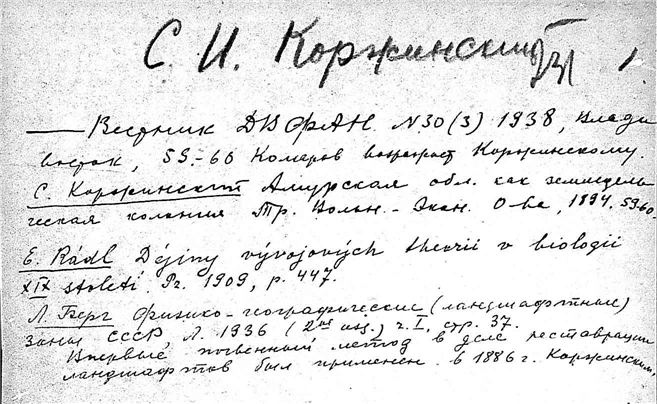 С. И. Коржинский 1.
— Вестник ДВФАН. N30(3) 1938, Влади
восток, 59-60 Комаров возражает Коржинскому.
С. Коржинский Амурская обл. как земледель
ческая колония Тр. Вольн.-Экон. О-ва, 1894, 59-60.
E. Rádl Dějiny vývojových theorií v biologii
XIX století. Pr. 1909, p. 447.
Л. Берг Физико-географические (ландшафтные)
зоны СССР, Л. 1936 (2ое изд.) ч. I, стр. 37.
Впервые почвенный метод в деле реставрации
ландшафтов был применен в 1886 г. Коржинским,